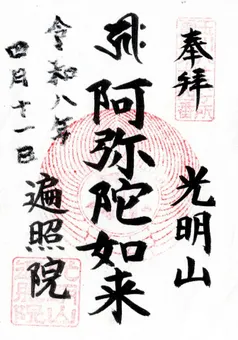 奉拝
光明山
阿弥陀如来
遍照院
令和八年
四月十一日